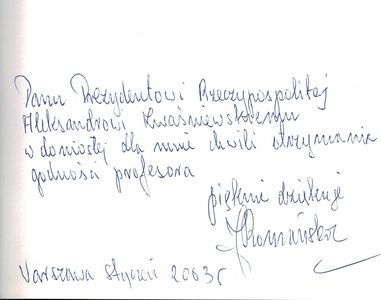 Panu Prezydentowi Rzeczypospolitej
Aleksandrowi Kwaśniewskiemu
w doniosłej dla mnie chwili otrzymania
godności profesora
pięknie dziękuję
Romańska
Warszawa styczeń 2003 r